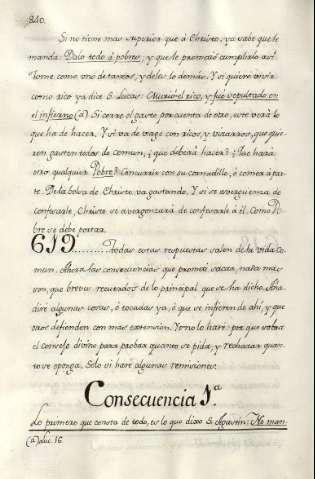 840.
Si no tiene mas superior que à Christo, ya sabe que le
manda: Dalo todo à pobres, y que le prometió cumplirlo así.
Tome como uno de tantos, y dela lo demás. Y si quiere
como rico ya dice S. Lucas: Murió el rico, y fué sepultado en
el infierno (a) Si cerro el gasto por cuenta de otro, este verá lo
que ha de hacer. Y si va de viage con ricos, y usurarios, que quie
ren gasten todos de comun, ¿que deberá hacer? ¿Que hará
otro qualquier Pobre? Caminarà con su cornadillo, ó comerá apar
te. De la bolsa de Christo va gastando. Y si se avergüenza de
confesarle, Christo se avergonzará de confesarle à él. Como Po
bre se debe portar.
619......... Todas estas respuestas salen de la vida co
mun. Ahora las consecuencias que prometí sacar, no
son, que breves recuerdos de lo principal que se ha dicho. Aña
dire algunas cosas, ó tocadas ya, ó que se infieren de ahí, y que
otros defienden con mas extension. Yo no lo haré; por que sobra
el consejo divino para probar quanto se pida, y rechazar quan
to se oponga. Solo si haré algunas remisiones.
Consecuencia 1.ª
Lo primero que consta de todo, es lo que dixo S. Agustin: He man
(a) Luc. 16